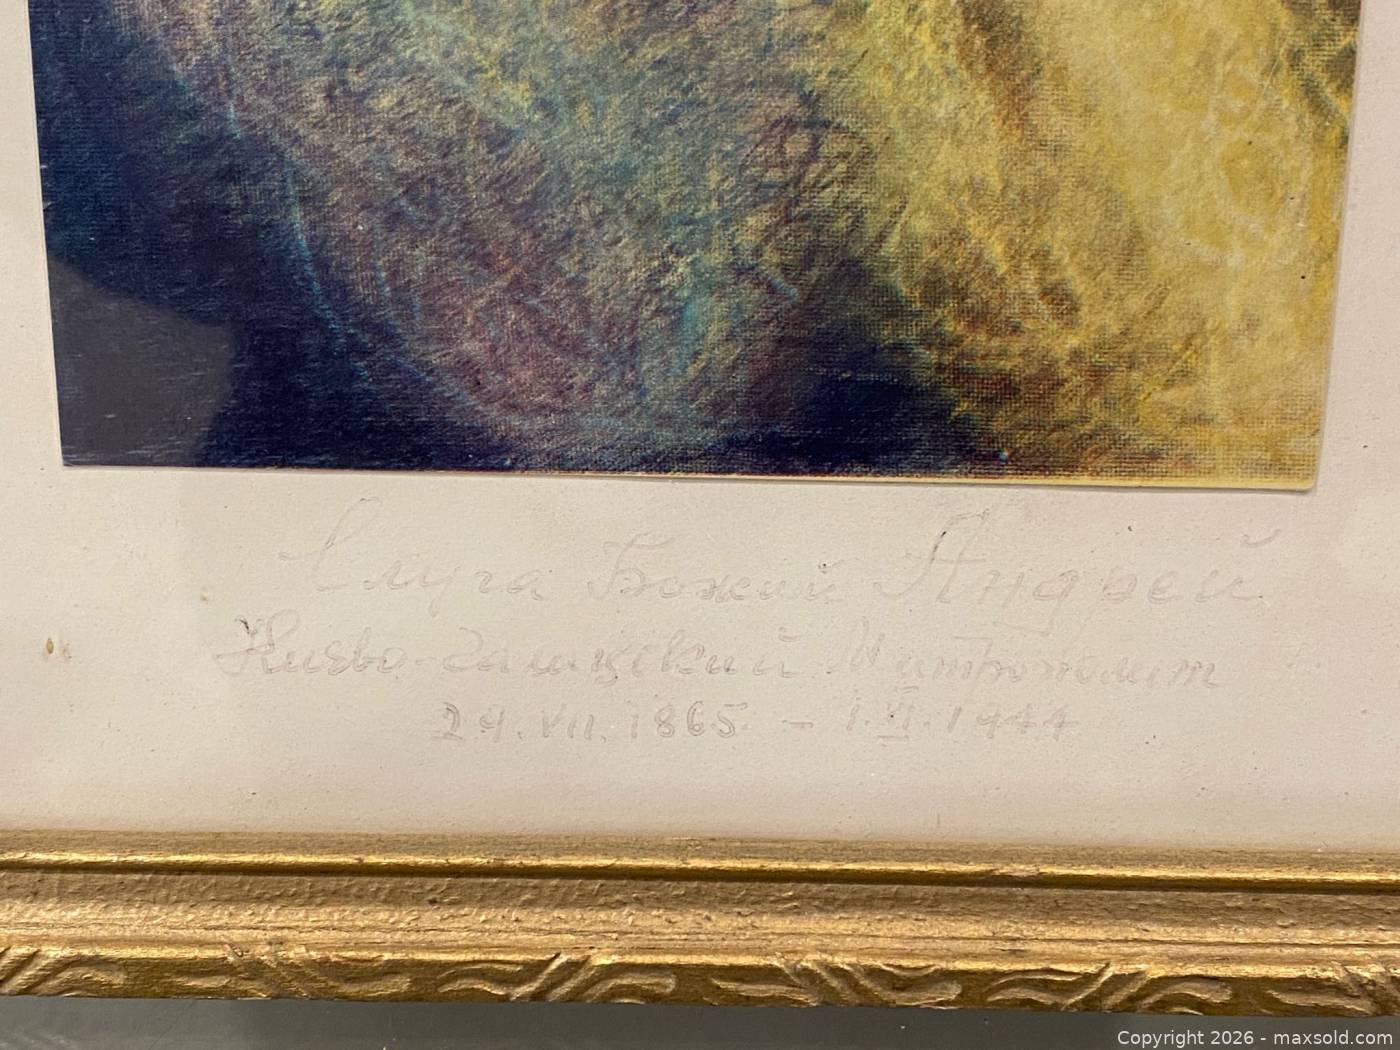 Слуга Божий Андрей
Києво-Галицький Митрополит
29.VII.1865 – 1.XI.1944
Copyright 2026 - maxsold.com